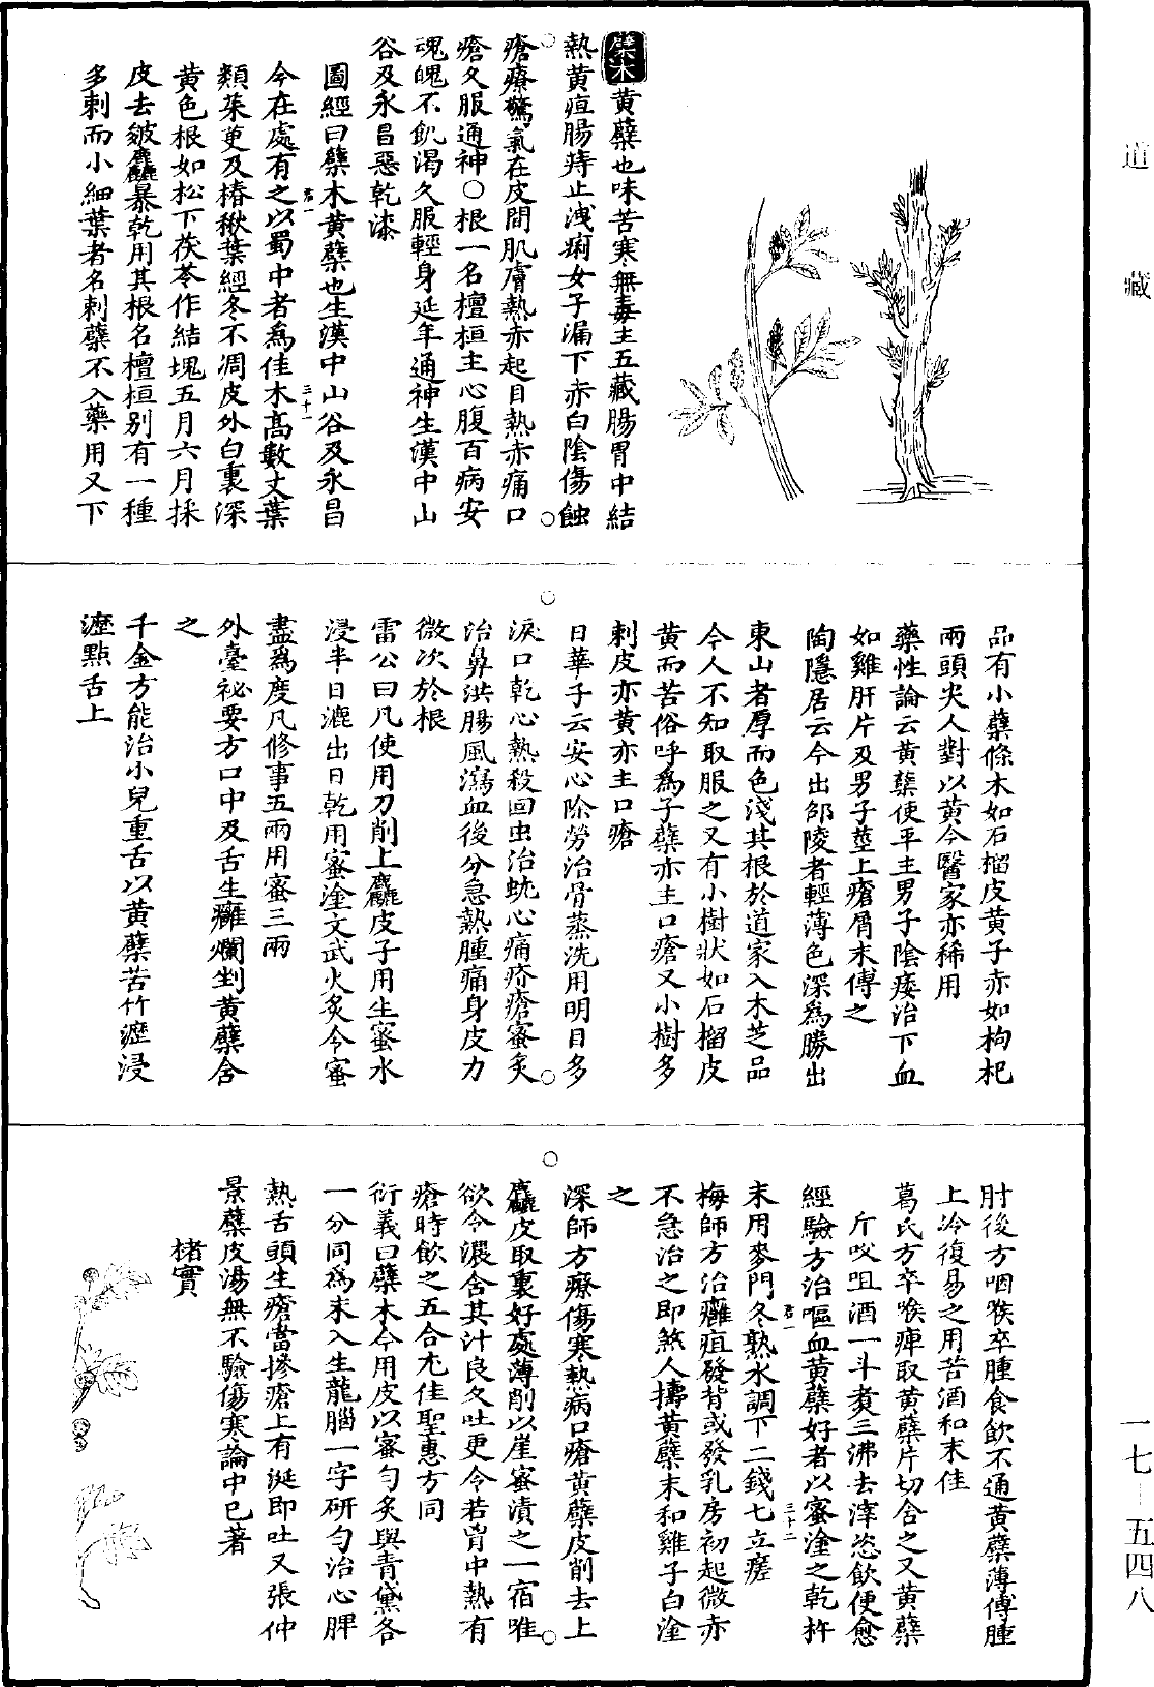 道藏
蘗木黃蘗也味苦寒無毒主五藏腸胃中結
熱黃疸腸痔止洩痢女子漏下赤白陰傷蝕
瘡療驚氣在皮間肌膚熱赤起目熱赤痛口
瘡久服通神○根一名檀桓主心腹百病安
魂魄不飢渴久服輕身延年通神生漢中山
谷及永昌惡乾漆
圖經曰蘗木黃蘗也生漢中山谷及永昌
今在處有之以蜀中者爲佳木高數丈葉
類茱萸及椿楸葉經冬不凋皮外白裏深
黃色根如松下茯苓作結塊五月六月採
皮去皴麤暴乾用其根名檀桓別有一種
多刺而小細葉者名刺蘗不入藥用又下
品有小蘗條木如石榴皮黃子赤如枸杞
兩頭尖人剉以黃今醫家亦稀用
藥性論云黃蘗使平主男子陰痿治下血
如雞肝片及男子莖上瘡屑末傅之
陶隱居云今出邵陵者輕薄色深爲勝出
東山者厚而色淺其根於道家入木芝品
今人不知取服之又有小樹狀如石榴皮
黃而苦俗呼爲子蘗亦主口瘡又小樹多
刺皮亦黃亦主口瘡
日華子云安心除勞治骨蒸洗用明目多
淚口乾心熱殺回虫治蚘心痛疥瘡蜜炙
治鼻洪腸風瀉血後分急熱腫痛身皮力
微次於根
雷公曰凡使用刀削上麤皮子用生蜜水
浸半日漉出日乾用蜜塗文武火炙令蜜
盡爲度凡修事五兩用蜜三兩
外臺祕要方口中及舌生癰爛剉黃蘗含
之
千金方能治小兒重舌以黃蘗苦竹瀝浸
瀝點舌上
肘後方咽喉卒腫食飲不通黃蘗薄傅腫
上冷復易之用苦酒和末佳
葛氏方卒喉痺取黃蘗片切含之又黃蘗
斤㕮咀酒一斗煑三沸去滓恣飲便愈
經驗方治嘔血黃蘗好者以蜜塗之乾杵
末用麥門冬熟水調下二錢七立瘥
梅師方治癰疽發背或發乳房初起微赤
不急治之即煞人擣黃蘗末和雞子白塗
之
深師方療傷寒熱病口瘡黃蘗皮削去上
麤皮取裏好處薄削以崖蜜漬之一宿唯
欲令濃含其汁良久吐更含若胷中熱有
瘡時飲之五合尤佳聖惠方同
衍義曰蘗木今用皮以蜜勻炙與青黛各
一分同爲末入生龍腦一字研勻治心脾
熱舌頭生瘡當摻瘡上有涎即吐又張仲
景蘗皮湯無不驗傷寒論中已著
楮實
一七—五四八